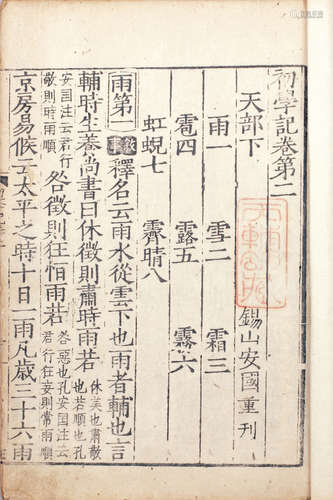 初學記卷第二
天部下 錫山安國重刊
雨一 雪二 霜三
雹四 露五 霧六
虹蜺七 霽晴八
雨第一 敘事 釋名云雨水從雲下也雨者輔也言
輔時生養尚書曰休徵則肅時雨若 休美也肅敬也若順也孔
安国注云君行敬則時雨順 咎徵則狂恒雨若 咎惡也孔安国注云君行狂妄則常雨順
京房易候云太平之時十日一雨凡歳三十六雨